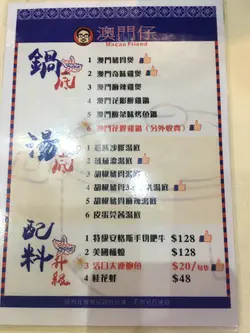 澳門仔
Macau Friend
鍋底
1 澳門豬骨煲
2 澳門奇味雞煲
3 澳門麻辣雞煲
4 澳門花膠醉雞鍋
5 澳門酸菜味烤魚鍋
6 澳門花膠雞鍋（另外收費）
湯底
1 沙嗲湯底
2 湯底
3 胡椒豬骨湯底
4 胡椒豬骨湯底
5 胡椒豬骨麻辣湯底
6 皮蛋芫茜湯底
配料升級
1 特級安格斯手切肥牛 $128
2 美國桶蠔 $128
3 活口大連鮑魚 $20/每隻
4 桂花蚌 $48